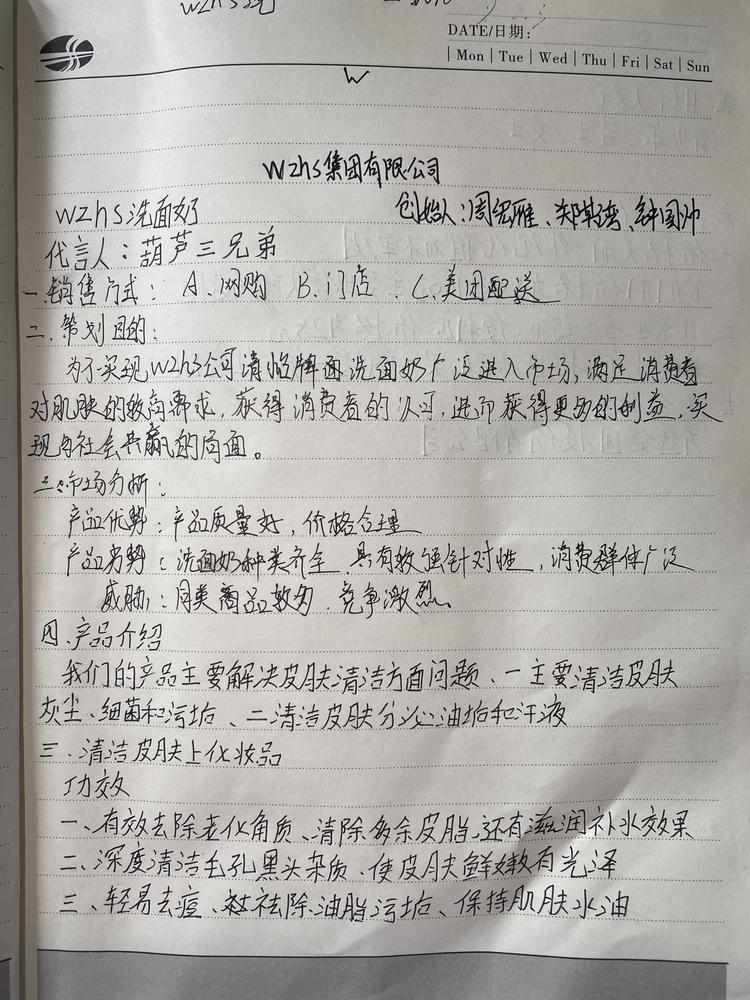 DATE/日期:
Mon | Tue | Wed | Thu | Fri | Sat | Sun
W
Wzhs集团有限公司
wzhs洗面奶
创始人:周
代言人:葫芦三兄弟
一.销售方式: A.网购 B.门店 . C.美团配送
二.策划目的:
为了实现wzhs公司清 牌面洗面奶广泛进入市场,满足消费者
对肌肤的较高要求,获得消费者的认可,进而获得更多的利益,实
现与社会共赢的局面。
三:市场分析:
产品优势:产品质量好,价格合理
产品劣势:洗面奶种类齐全,具有较强针对性,消费群体广泛
威胁:同类商品较多,竞争激烈。
四.产品介绍
我们的产品主要解决皮肤清洁方面问题、一主要清洁皮肤
灰尘、细菌和污垢、二清洁皮肤分泌油垢和汗液
三.清洁皮肤上化妆品
功效
一、有效去除老化角质、清除多余皮脂,还有滋润补水效果
二、深度清洁毛孔黑头杂质、使皮肤鲜嫩有光泽
三、轻易去痘、 祛除油脂污垢、保持肌肤水油